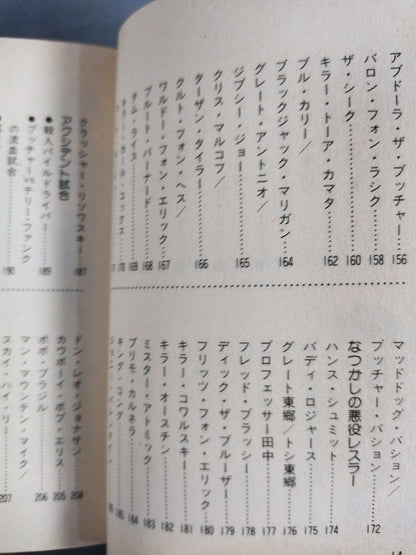 アブドーラ・ザ・ブッチャー……156
バロン・フォン・ラシク……158
ザ・シーク……160
キラー・トーア・カマタ……162
ブル・カリー／
ブラックジャック・マリガン……164
グレート・アントニオ／
ジプシー・ジョー……165
クリス・マルコフ／
ターザン・タイラー……166
クルト・フォン・ヘス／
ワルドー・フォン・エリック……167
ブルート・バーナード……168
タム・ライス……169
キラー・カール・コックス……170
マッドドッグ・バション／
ブッチャー・バション……172
なつかしの悪役レスラー
ハンス・シュミット……174
バディ・ロジャース……175
グレート東郷／トシ東郷……176
プロフェッサー田中……177
フレッド・ブラッシー……178
ディック・ザ・ブルーザー……179
フリッツ・フォン・エリック……180
キラー・コワルスキー……181
キラー・オースチン……182
ミスター・アトミック……183
プリモ・カルネラ……184
キング・コング……185
クラッシャー・リソワスキー……187
アクシデント試合
●殺人パイルドライバー……189
●ブッチャーVSテリー・ファンク
の流血試合……190
ドン・レオ・ジョナサン……204
カウボーイ・ボブ・エリス……205
ボボ・ブラジル……206
マン・マウンテン・マイク／
スカイ・ハイ・リー……207